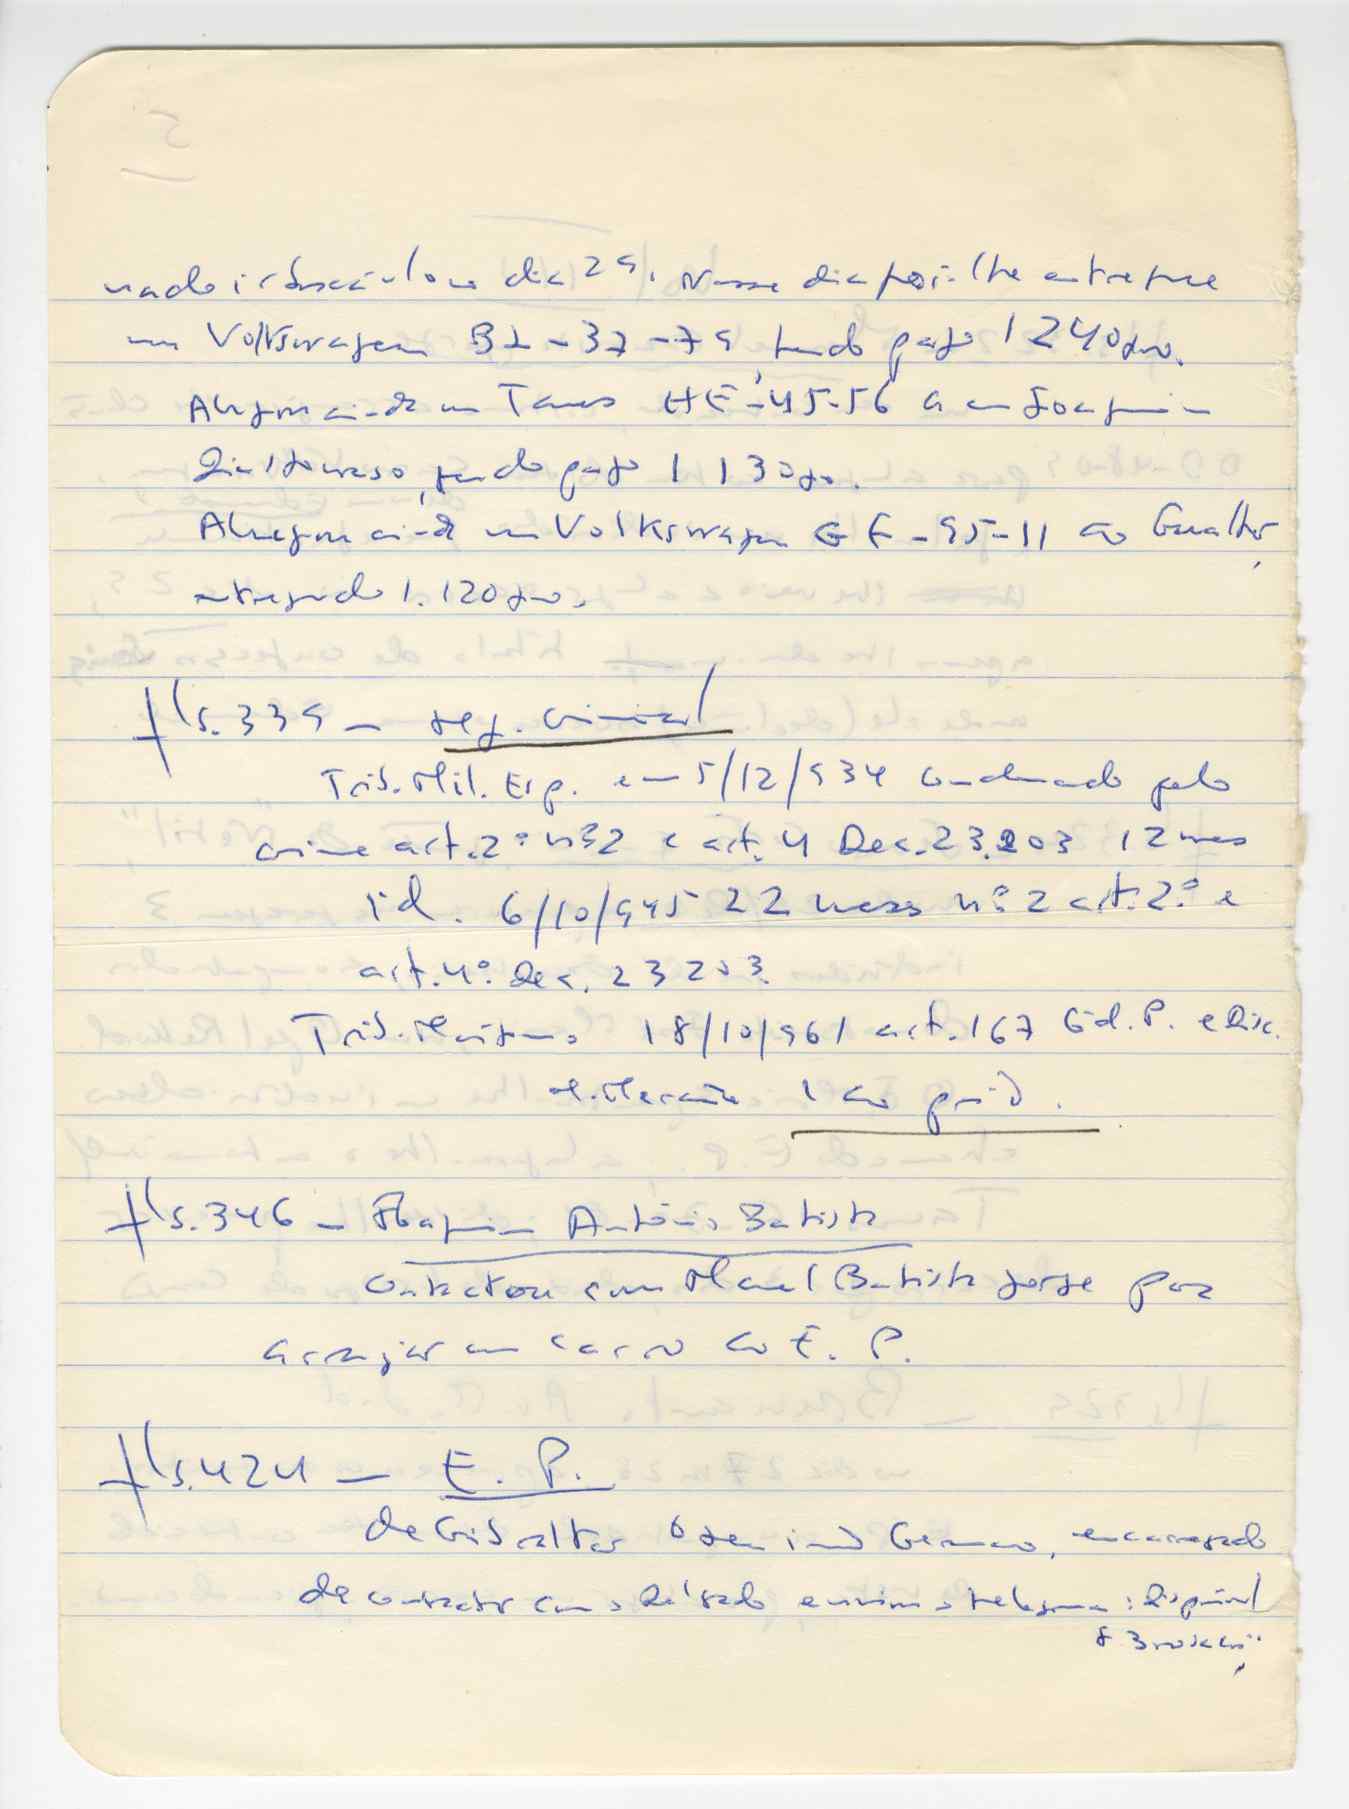 nado ir buscá-lo no dia 29. Nesse dia foi-lhe entregue
um Volkswagen BI-37-79, tendo pago 1240$00.
Alugou ainda um Taunus HE-45-56 a um Joaquim
tendo pago 1130$00.
Alugou ainda um Volkswagen GE-95-11 ao Gualter,
entregando 1.120$00.
fls. 339 - reg. criminal
Trib. Mil. Esp. em 5/12/934 condenado pelo
crime art. 2º nº 2 e art. 4 Dec. 23.203 12 meses
id. 6/10/945 22 meses nº 2 art. 2º e
art. 4º Dec. 23203.
Trib. Marítimo 18/10/961 art. 167 Cód. P. e Disc.
M. Mercante 1 ano prisão.
fls. 346 - Joaquim António Batista
Contactou com Manuel Batista Jorge para
arranjar um carro ao E. P.
fls. 424 - E. P.
de Gibraltar o seu irmão Germano, encarregado
de contactar com o Delgado enviou o telegrama: